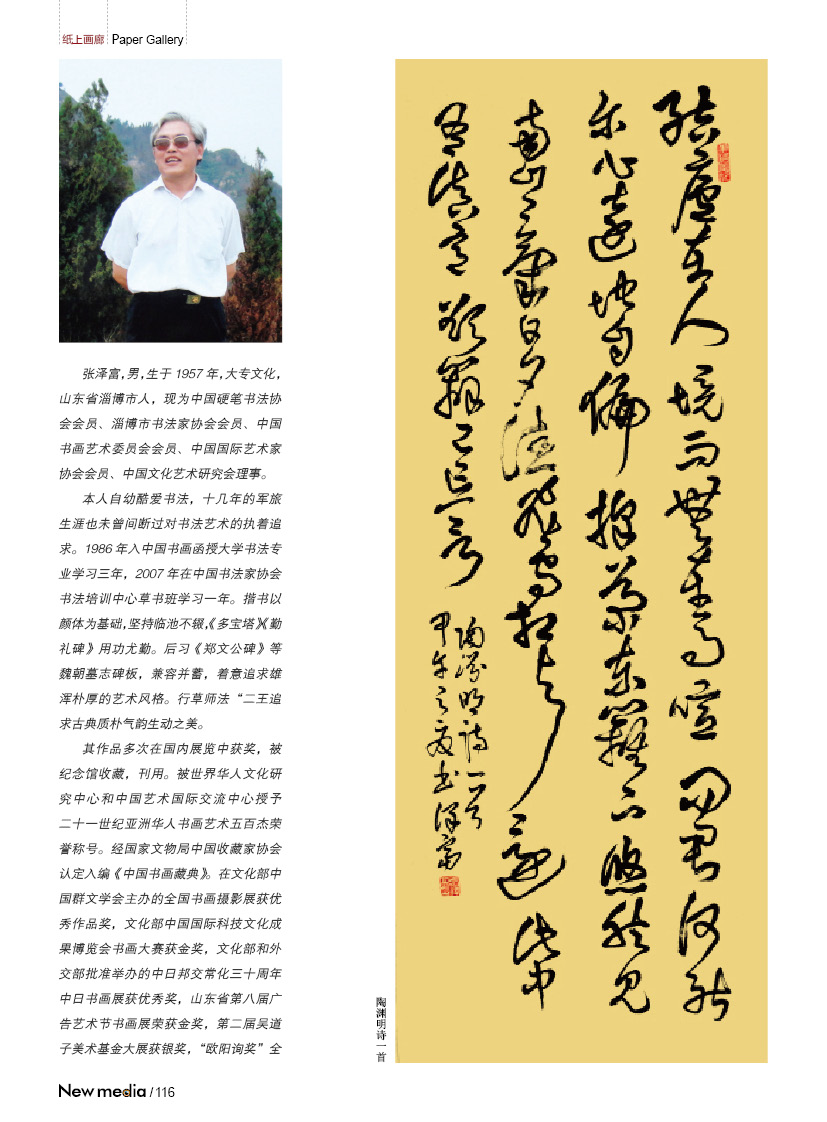 纸上画廊 Paper Gallery
張泽富,男,生于 1957 年,大专文化,
山东省淄博市人，现为中国硬笔书法协
会会员、淄博市书法家协会会员、中国
书画艺术委员会会员、中国国际艺术家
协会会员、中国文化艺术研究会理事。
本人自幼酷爱书法，十几年的军旅
生涯也未曾间断过对书法艺术的执着追
求。1986 年入中国书画函授大学书法专
业学习三年，2007 年在中国书法家协会
书法培训中心草书班学习一年。揩书以
颜体为基础,坚持临池不辍,《多宝塔》《勤
礼碑》用功尤勤。后习《郑文公碑》等
魏朝墓志碑板，兼容并蓄，着意追求雄
浑朴厚的艺术风格。行草师法“二王追
求古典质朴气韵生动之美。
其作品多次在国内展览中获奖，被
纪念馆收藏，刊用。被世界华人文化研
究中心和中国艺术国际交流中心授予
二十一世纪亚洲华人书画艺术五百杰荣
誉称号。经国家文物局中国收藏家协会
认定入编《中国书画藏典》。在文化部中
国群文学会主办的全国书画摄影展获优
秀作品奖，文化部中国国际科技文化成
果博览会书画大赛获金奖，文化部和外
交部批准举办的中日邦交常化三十周年
中日书画展获优秀奖，山东省第八届广
告艺术节书画展荣获金奖，第二届吴道
子美术基金大展获银奖，“欧阳询奖”全
結廬在人境而無車馬喧問君何能
尔心遠地自偏採菊東籬下悠然見
南山〻氣日夕佳飛鳥相与還此中
有真意欲辨已忘言
陶淵明詩一首
甲午之夏书泽富
陶渊明诗一首
New media / 116